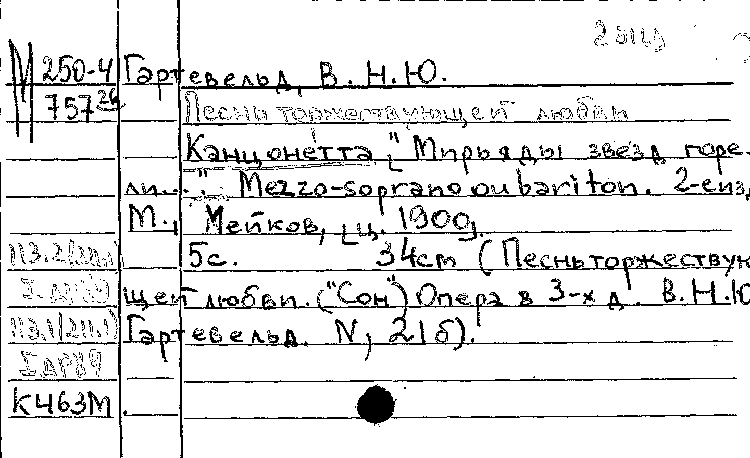 2 экз
М 250-4 Гартевельд, В. Н. Ю.
757 26 Песнь торжествующей любви
Канцонетта „Мирьяды звезд горе-
ли..." Mezzo-soprano ou bariton. 2-е изд.
М., Мейков, ц. 1900д.
113.2(2ц.1) 5с. 34cm (Песнь торжествую
щей любви. ("Сон") Опера в 3-х д. В. Н. Ю
113.1/2ц.1) Гартевельд. N, 21б).
IДР89
К463М.